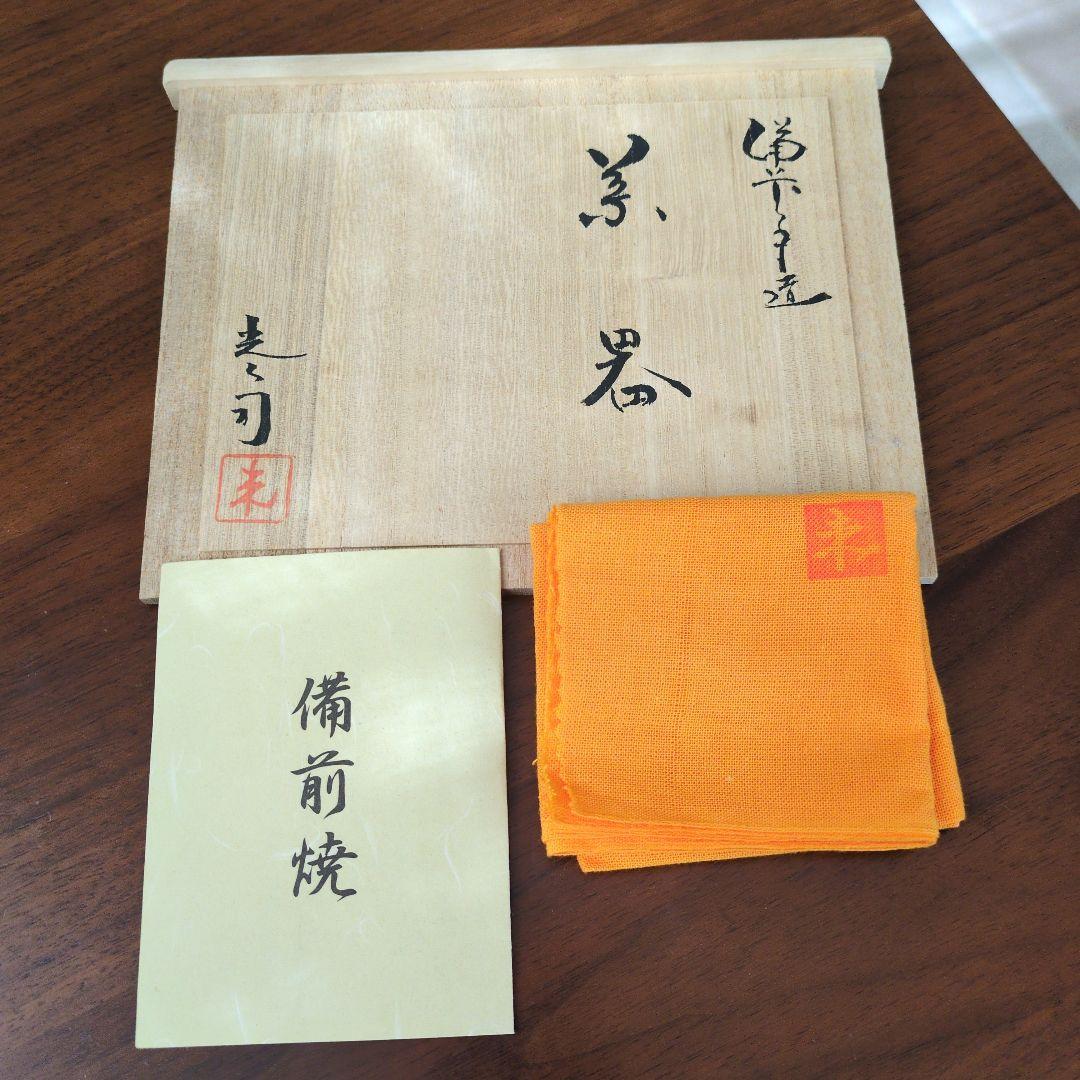 備前手造
菓器
備前焼